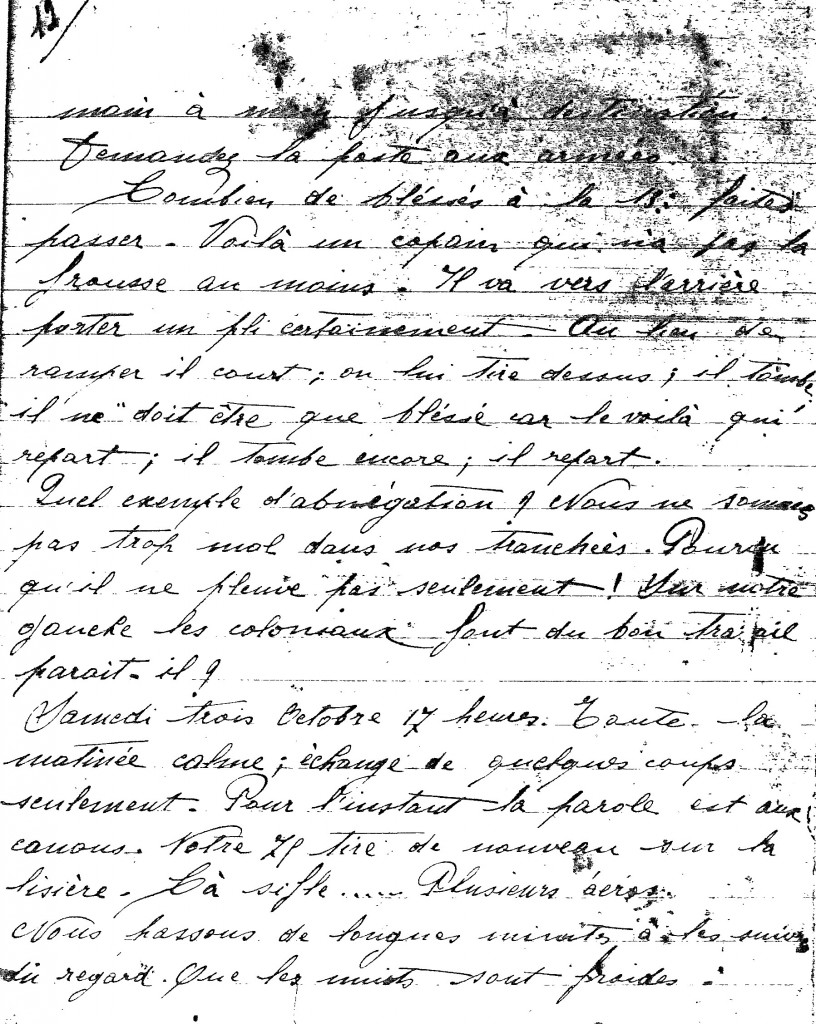 13/
main à main jusqu'à destination.
Demandez la poste aux armées...
Combien de bléssés à la 13e faites
passer - Voilà un copain qui n'a pas la
frousse au moins - Il va vers l'arrière
porter un pli certainement - Au lieu de
ramper il court ; on lui tire dessus ; il tombe
il ne doit être que bléssé car le voilà qui
repart ; il tombe encore ; il repart.
Quel exemple d'abnégation ? Nous ne sommes
pas trop mal dans nos tranchées. Pourvu
qu'il ne pleuve pas seulement ! Sur notre
gauche les coloniaux font du bon travail
parait-il ?
Samedi trois Octobre 17 heures. Toute la
matinée calme ; échange de quelques coups
seulement. Pour l'instant la parole est aux
canons. Notre 75 tire de nouveau sur la
lisière - Cà sifle..... Plusieurs aéros.
Nous passons de longues minutes à les suivre
du regard. Que les nuits sont froides.